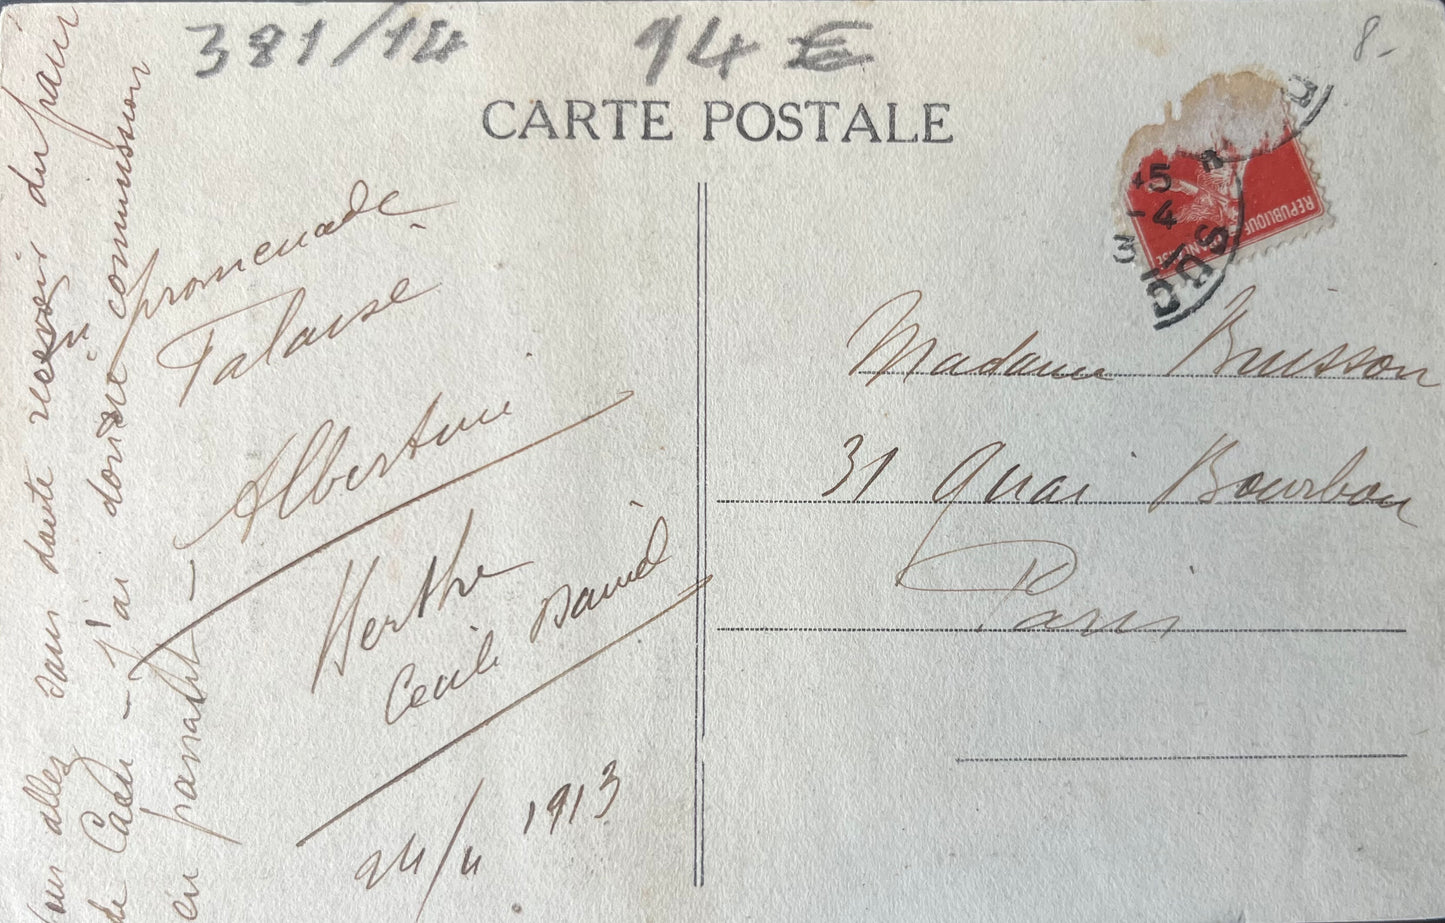 381/14
94 €
8-
CARTE POSTALE
REPUBLIQUE
Vous allez sans doute recevoir du pain
de Caen - J'ai donné commission
en passant -
promenade
Falaise
Albertine
Berthe
Cécile David
24/4 1913
Madame Buisson
31 Quai Bourbon
Paris